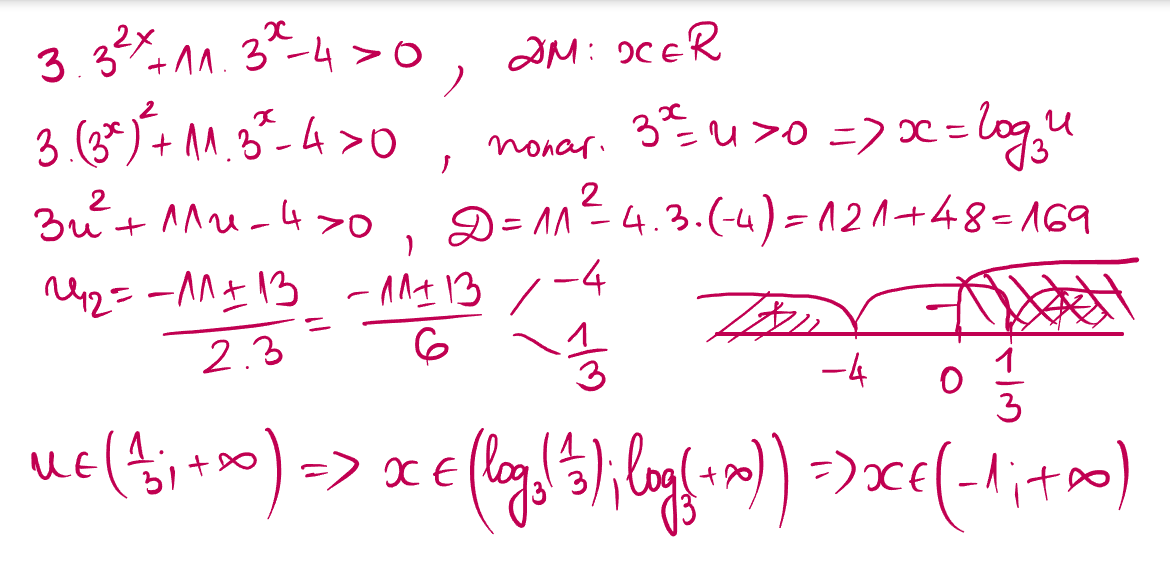 3.3^{2x}+11.3^x-4>0, ДМ: x∈R
3.(3^x)^2+11.3^x-4>0, полаг. 3^x=u>0 => x=log_3 u
3u^2+11u-4>0, D=11^2-4.3.(-4)=121+48=169
u_{1,2}=\frac{-11±13}{2.3}=\frac{-11±13}{6} -4 \frac{1}{3}
+ - + -4 0 \frac{1}{3}
u∈(\frac{1}{3};+∞) => x∈(log_3(\frac{1}{3});log_3(+∞)) => x∈(-1;+∞)